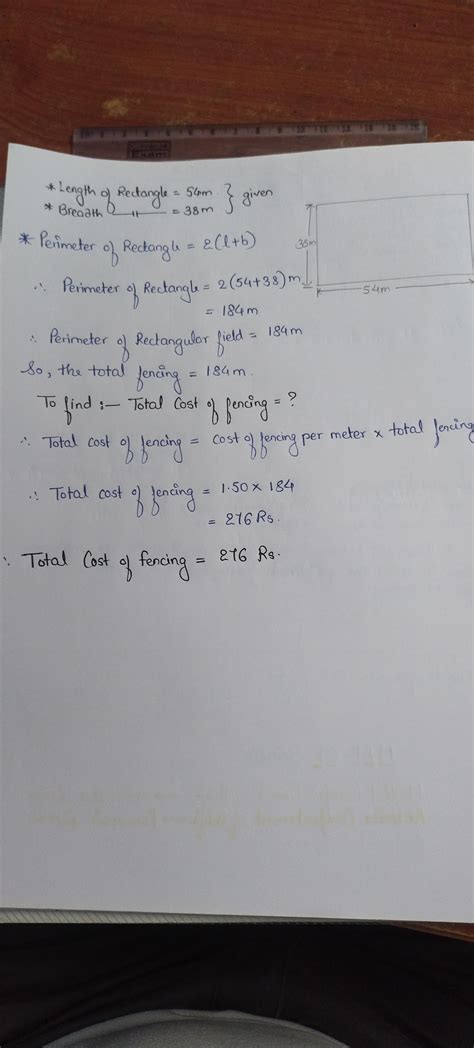 * Length of Rectangle = 54m } given
* Breadth —11— = 38m
* Perimeter of Rectangle = 2(l+b)
38m
54m
∴ Perimeter of Rectangle = 2(54+38)m
= 184m
∴ Perimeter of Rectangular field = 184m
So, the total fencing = 184m.
To find :— Total Cost of fencing = ?
∴ Total cost of fencing = cost of fencing per meter x total fencing
∴ Total cost of fencing = 1.50 x 184
= 276 Rs.
∴ Total Cost of fencing = 276 Rs.